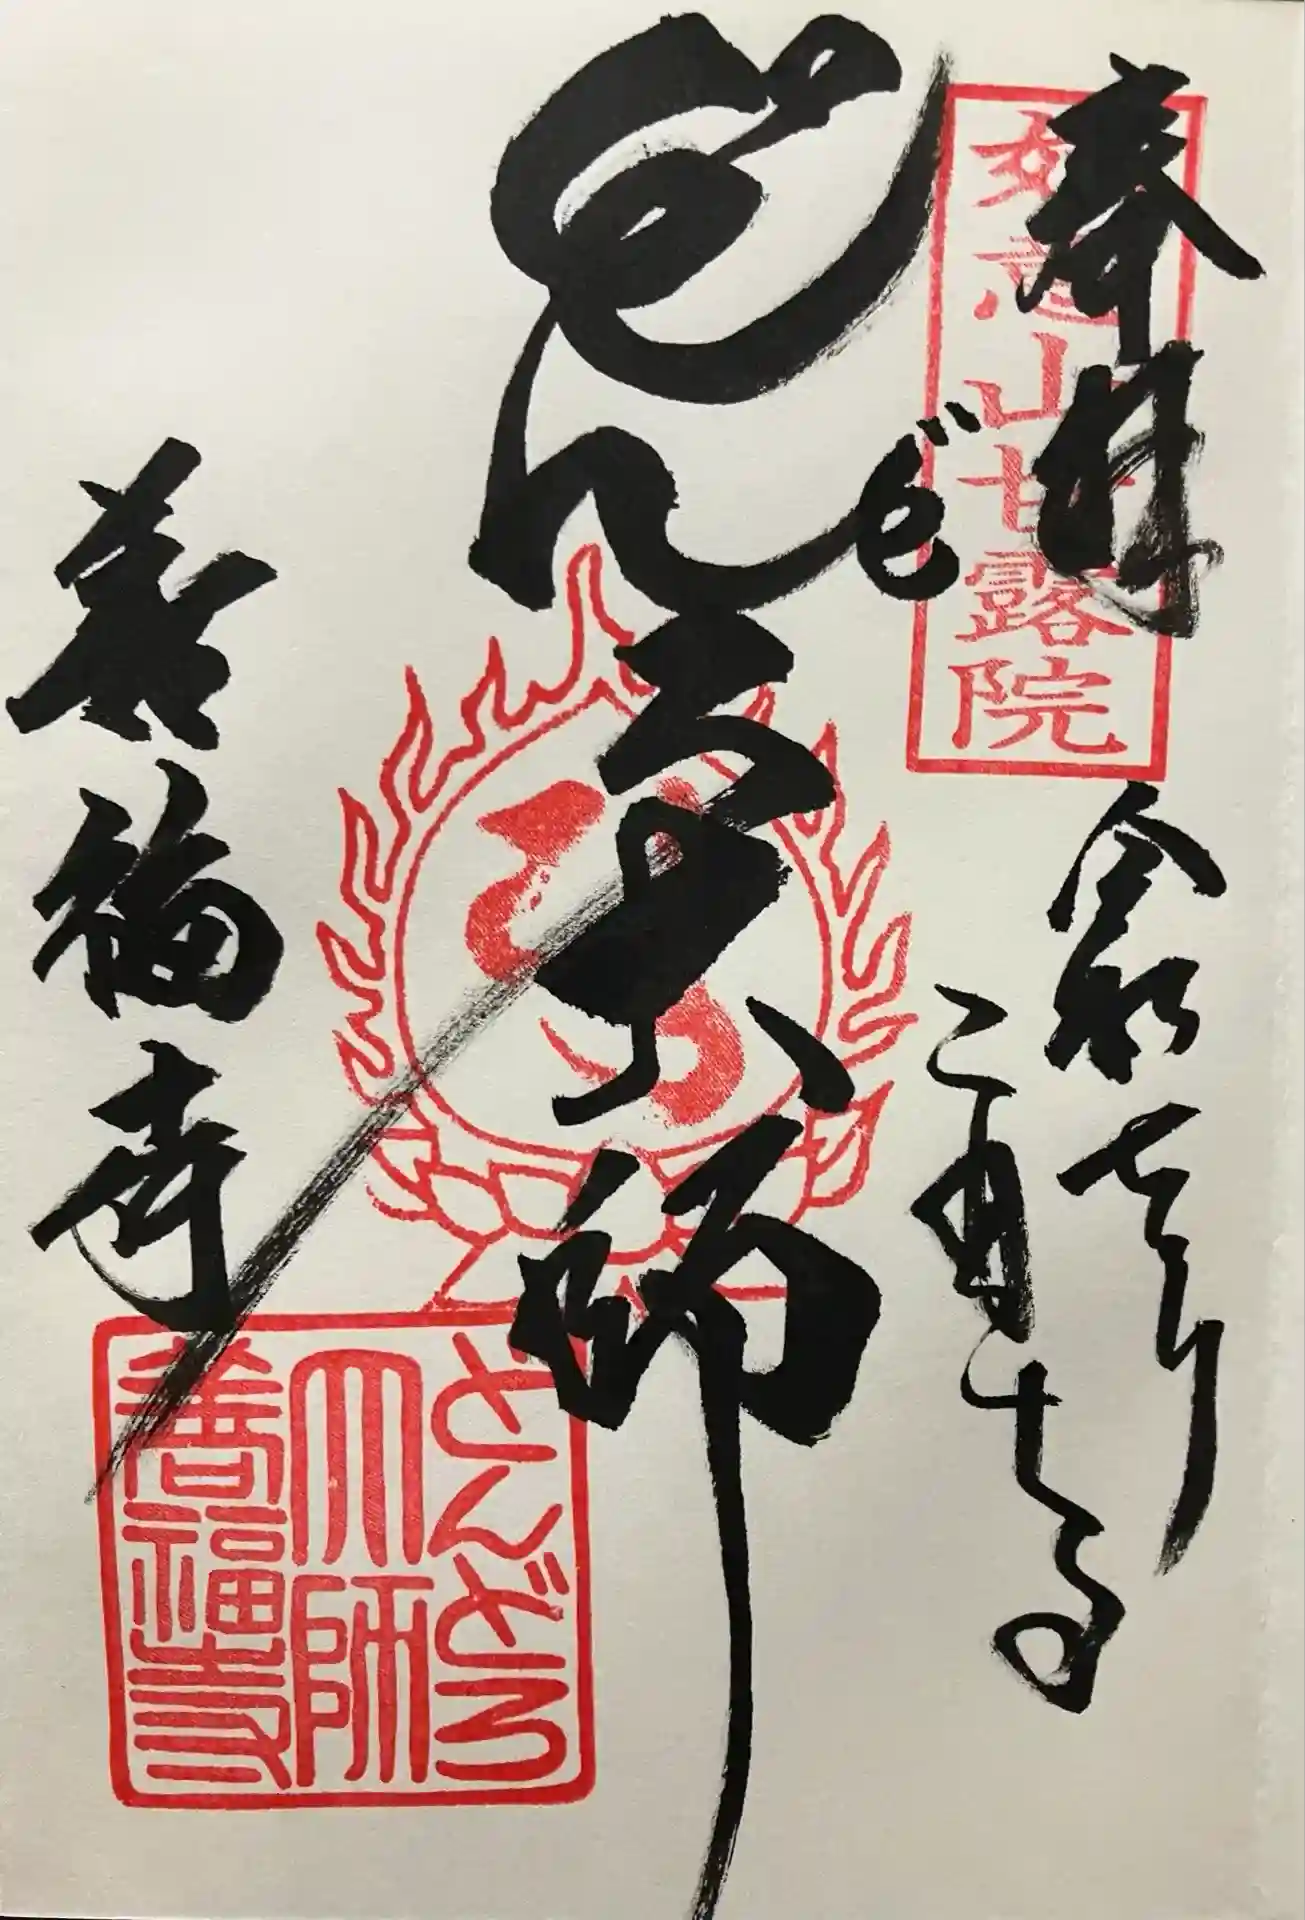 奉拝
如意山甘露院
令和
二月十
どんどろ大師
善福寺
どんどろ
大師
善福寺